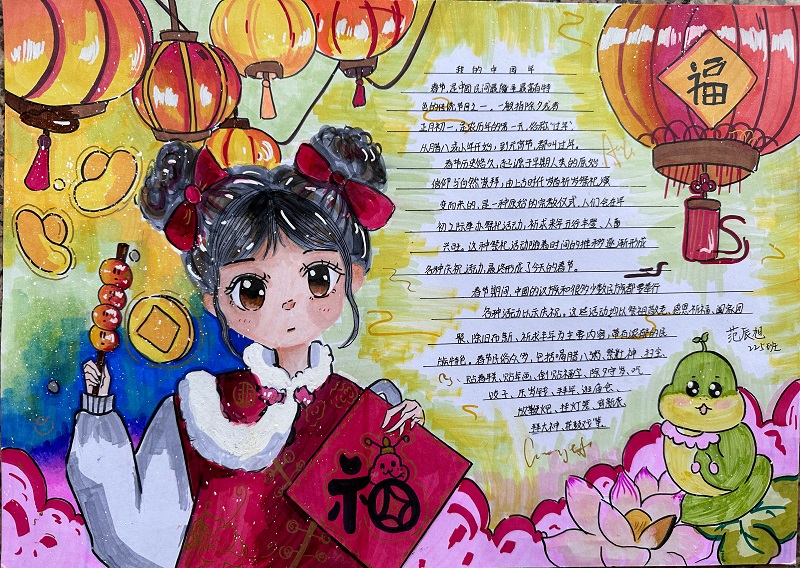 福
我的中国年
春节,是中国民间最隆重最富有特
色的传统节日之一。一般指除夕和
正月初一,是农历年的第一天,俗称“过年”
从腊八或小年开始,到元宵节,都叫过年。
春节历史悠久,起源于早期人类的原始
信仰与自然崇拜,由上古时代岁首祈岁祭祀演
变而来的,是一种原始的宗教仪式,人们会在年
初之际举办祭祀活动,祈求来年五谷丰登、人畜
兴旺。这种祭祀活动随着时间的推移逐渐形成
各种庆祝活动,最终形成了今天的春节。
春节期间,中国的汉族和很多少数民族都要举行
各种活动以示庆祝。这些活动均以祭祖敬老、感恩祈福、阖家团
聚、除旧布新、祈求丰年为主要内容,带有浓郁的民
族特色。春节民俗众多,包括喝腊八粥、祭灶神、扫尘、
贴春联、贴年画、倒贴福字、除夕守岁、吃
饺子、压岁钱、拜年、逛庙会、
放鞭炮、挂灯笼、
范辰旭
225班
福